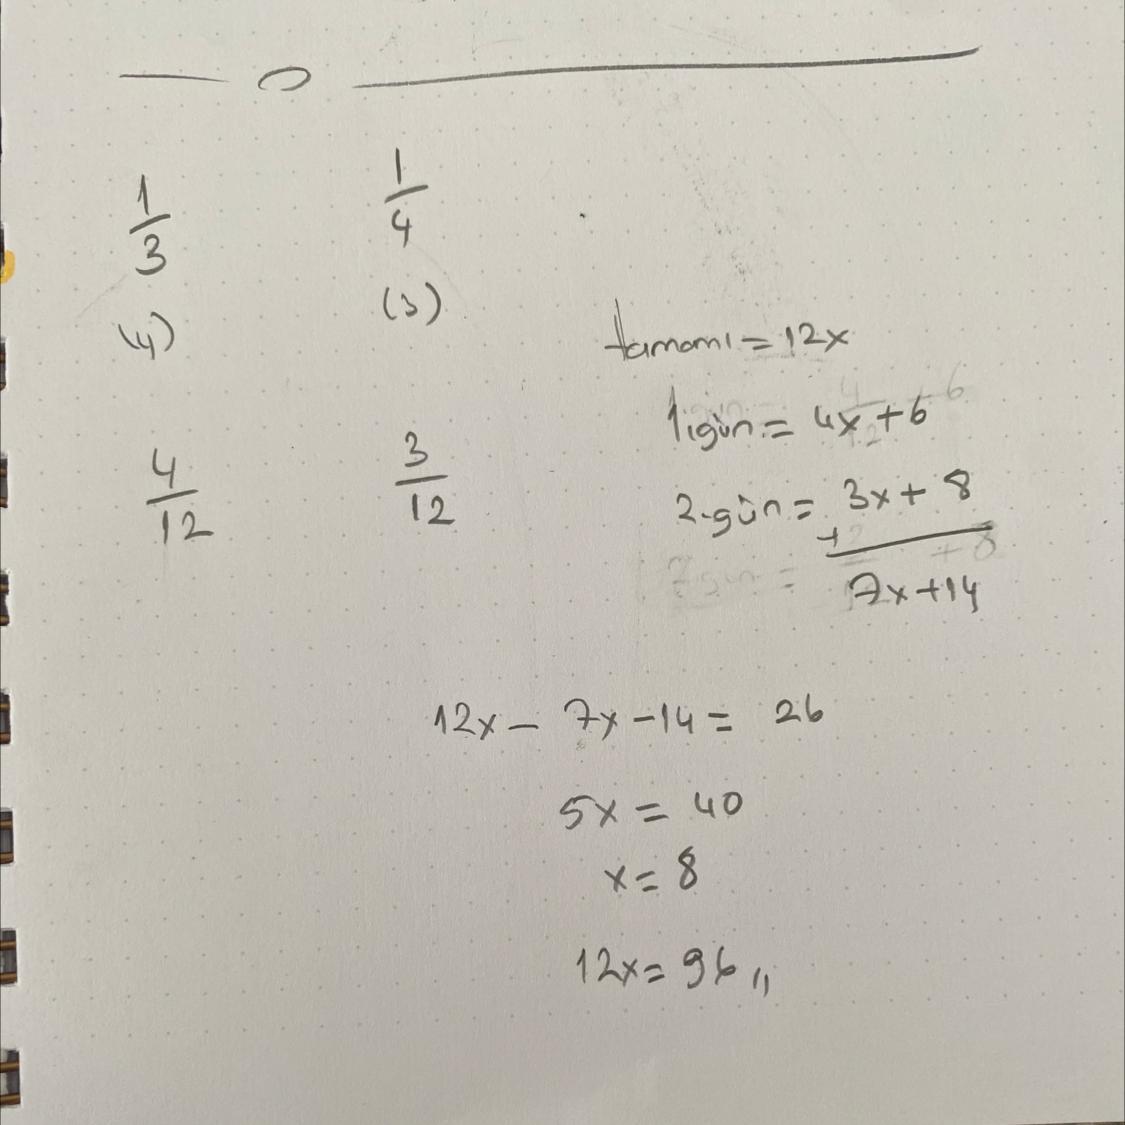 1/3 1/4
(4) (3)
4/12 3/12
tamamı = 12x
1.gün = 4x + 6
2.gün = 3x + 8
+
7x + 14
12x - 7x - 14 = 26
5x = 40
x = 8
12x = 96 //